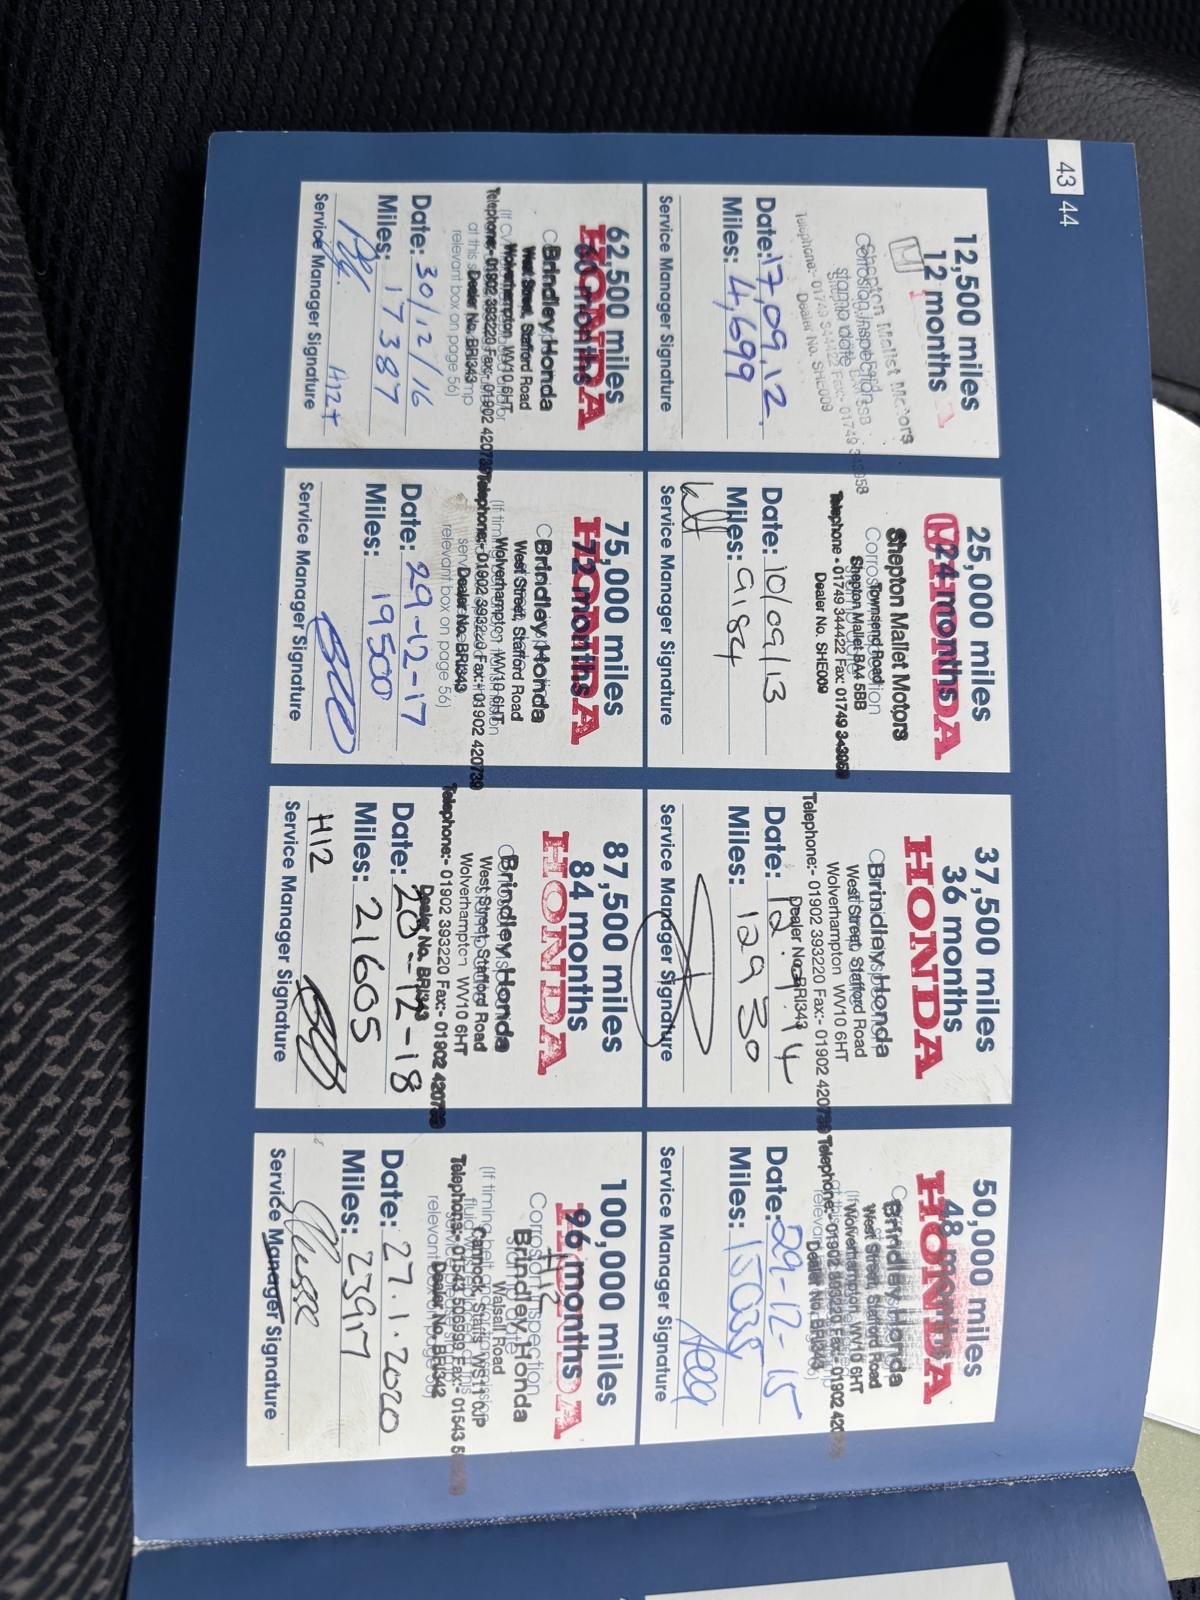 43 44
12,500 miles
12 months
Shepton Mallet Motors
Telephone:- 01749 344422 Fax:- 01749
Dealer No. SHE009
Date: 17,09,12.
Miles: 4,699
Service Manager Signature
25,000 miles
24 months
HONDA
Shepton Mallet Motors
Townsend Road
Shepton Mallet BA4 5BB
Telephone - 01749 344422 Fax: 01749
Dealer No. SHE009
Date: 10/09/13
Miles: 9184
Service Manager Signature
37,500 miles
36 months
HONDA
Brindley Honda
West Street, Stafford Road
Wolverhampton WV10 6HT
Telephone:- 01902 393220 Fax:- 01902 420739
Dealer No. BRI343
Date: 12.9.14
Miles: 12930
Service Manager Signature
50,000 miles
48 months
HONDA
Brindley Honda
West Street, Stafford Road
Wolverhampton, WV10 6HT
Telephone:- 01902 393220 Fax:- 01902
Dealer No. BRI343
Date: 29-12-15
Miles: 15035
Service Manager Signature
62,500 miles
60 months
HONDA
Brindley Honda
West Street, Stafford Road
Wolverhampton, WV10 6HT
Telephone:- 01902 393220 Fax:- 01902 420739
Dealer No. BRI343
relevant box on page 56)
Date: 30/12/16
Miles: 17387
Service Manager Signature
75,000 miles
72 months
HONDA
Brindley Honda
West Street, Stafford Road
Wolverhampton WV10 6HT
Telephone:- 01902 393220 Fax:- 01902 420739
Dealer No. BRI343
relevant box on page 56)
Date: 29-12-17
Miles: 19500
Service Manager Signature
87,500 miles
84 months
HONDA
Brindley Honda
West Street, Stafford Road
Wolverhampton WV10 6HT
Telephone:- 01902 393220 Fax:- 01902 420739
Dealer No. BRI343
Date: 20-12-18
Miles: 21605
H12
Service Manager Signature
100,000 miles
96 months
HONDA
Corrosion Inspection
Brindley Honda
Walsall Road
Cannock, Staffs WS11 0JP
Telephone:- 01543 Fax:- 01543
Dealer No. BRI342
Date: 27.1.2020
Miles: 23917
Service Manager Signature